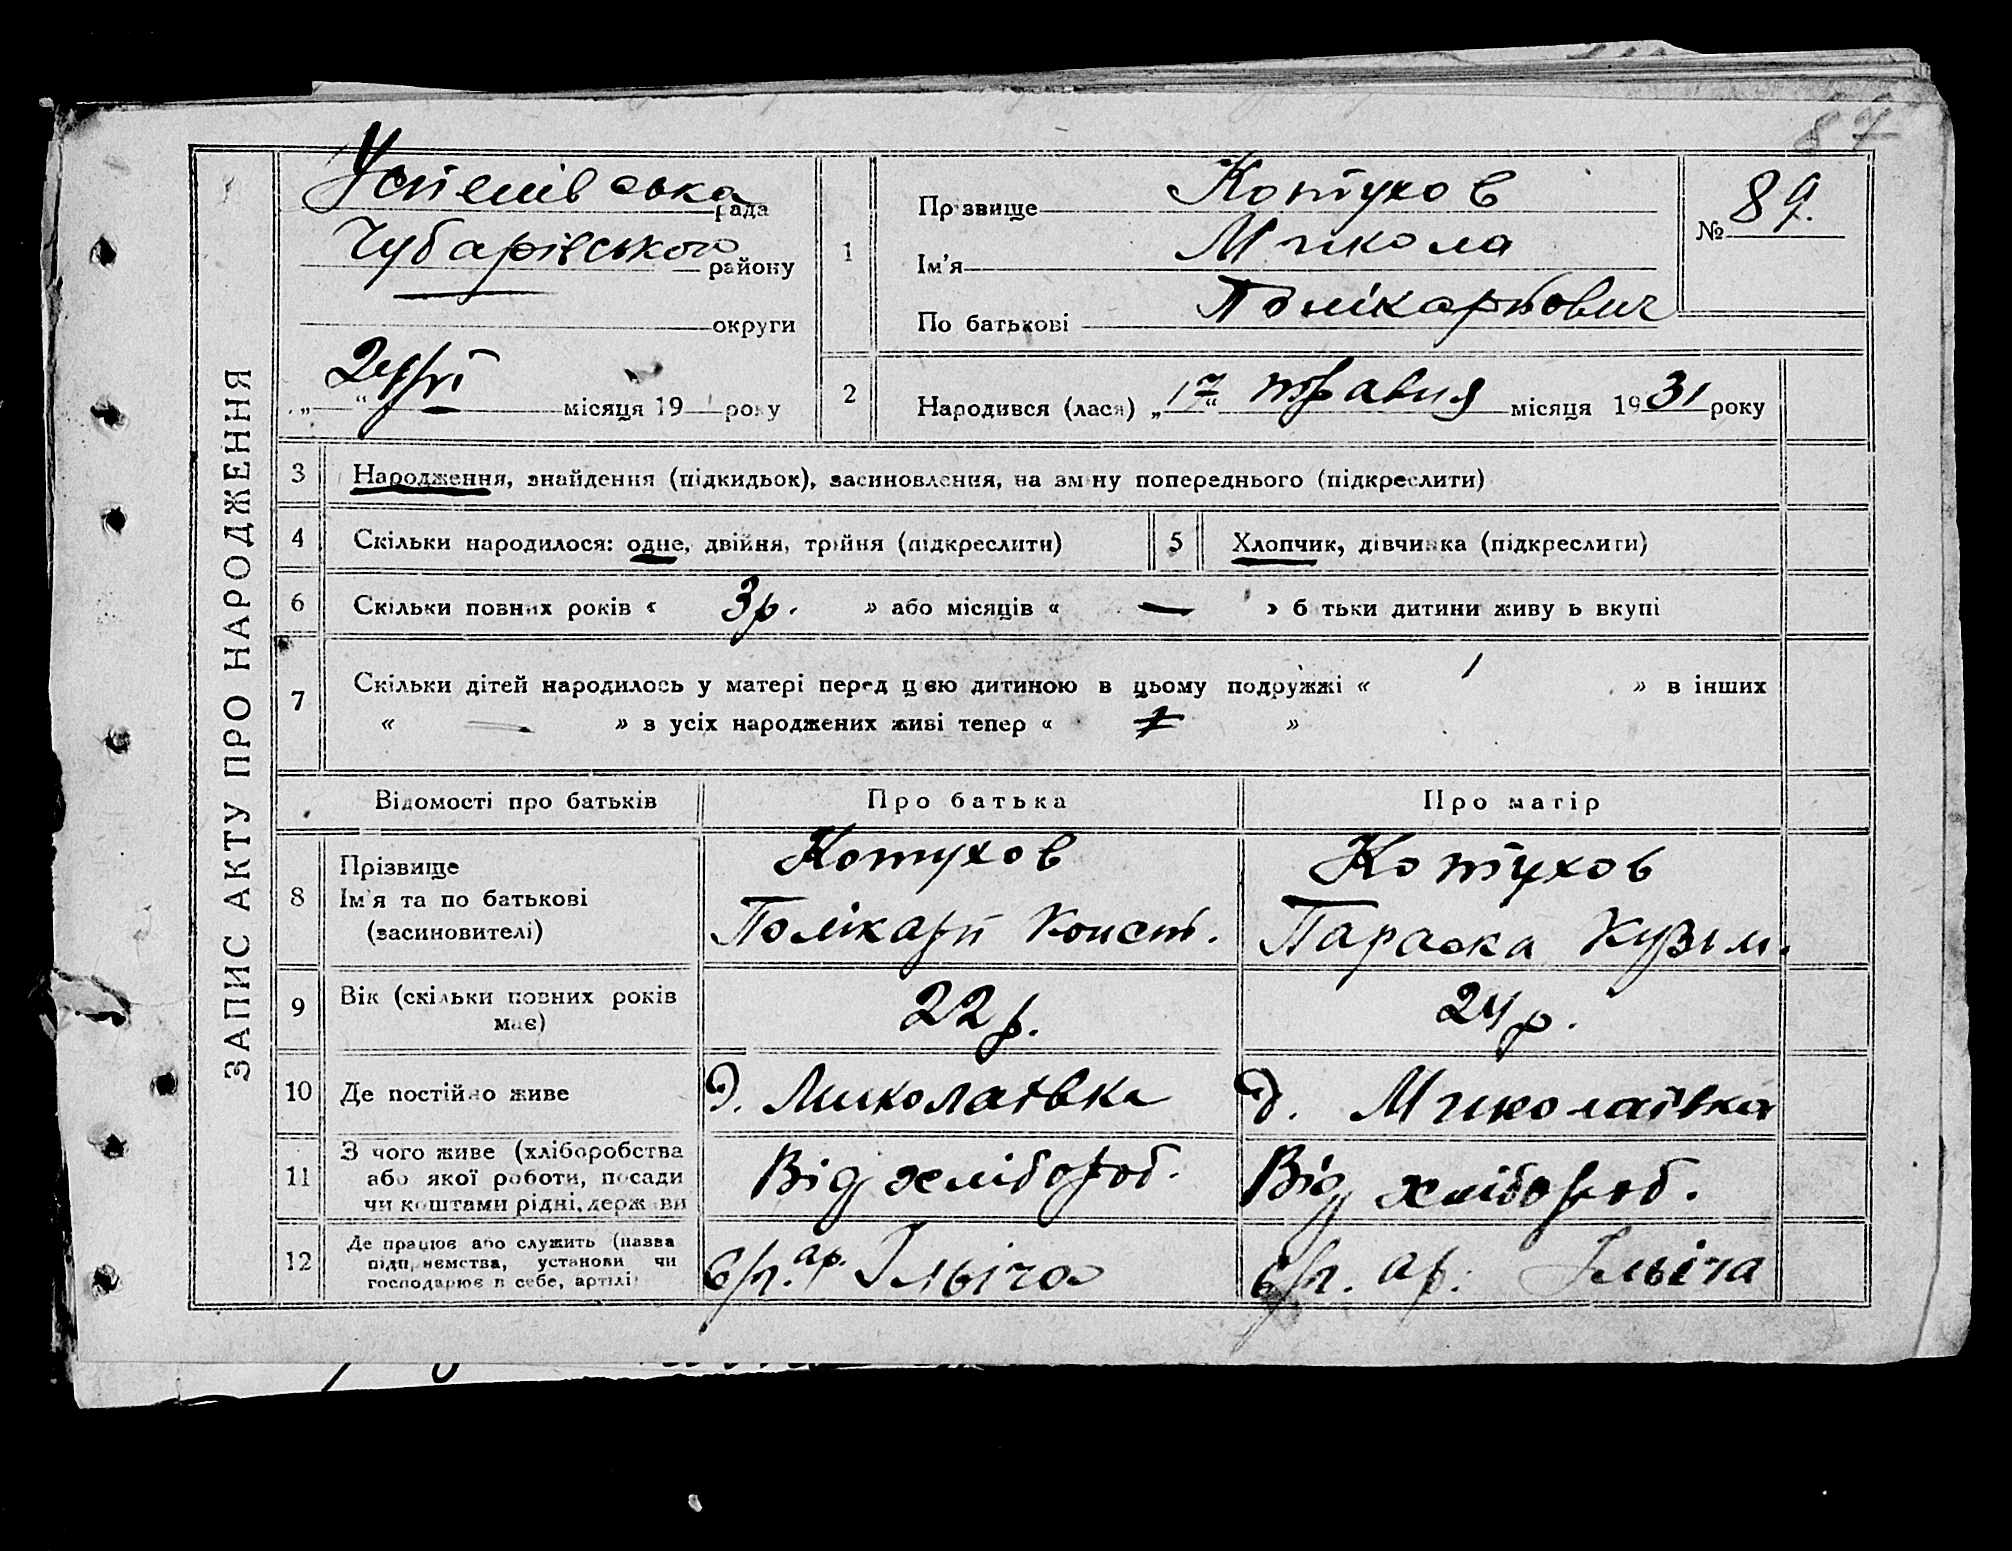 87
ЗАПИС АКТУ ПРО НАРОДЖЕННЯ
Успенівська рада
Чубарівського району
округи
„ “ 24/VI місяця 19 року
1
Прізвище Котухов
Ім’я Микола
По батькові Полікарпович
№ 89.
2
Народився (лася) „17“ травня місяця 1931 року
3 Народження, знайдення (підкидьок), засиновлення, на зміну попереднього (підкреслити)
4 Скільки народилося: одне, двійня, трійня (підкреслити)
5 Хлопчик, дівчинка (підкреслити)
6 Скільки повних років « 3 р. » або місяців « — » батьки дитини живуть вкупі
7 Скільки дітей народилось у матері перед цією дитиною в цьому подружжі « 1 » в інших
« — » в усіх народжених живі тепер « »
Відомості про батьків Про батька Про матір
8 Прізвище
Ім’я та по батькові
(засиновителі)
Котухов
Полікарп Конст.
Котухов
Параска Кузьм.
9 Вік (скільки повних років
має)
22 р.
24 р.
10 Де постійно живе
д. Миколаївка
д. Миколаївка
11 З чого живе (хліборобства
або якої роботи, посади
чи коштами рідні, держави
Від хлібороб.
Від хлібороб.
12 Де працює або служить (назва
підприємства, установи чи
господарює в себе, артілі
с/г. ар. Ілліча
с/г. ар. Ільіча